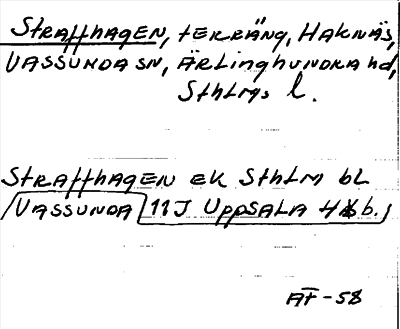 Straffhagen, terräng, Haknäs,
Vassunda sn, Ärlinghundra hd,
Sthlms l.
Straffhagen ek Sthlm bl
Vassunda 11J Uppsala H b.
AF-58